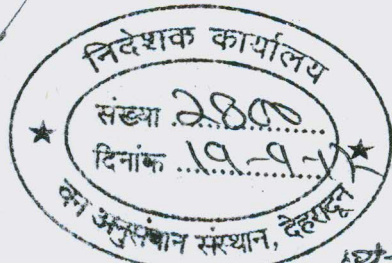 निदेशक कार्यालय
संख्या 2800
दिनांक 19-9-
वन अनुसंधान संस्थान, देहरादून